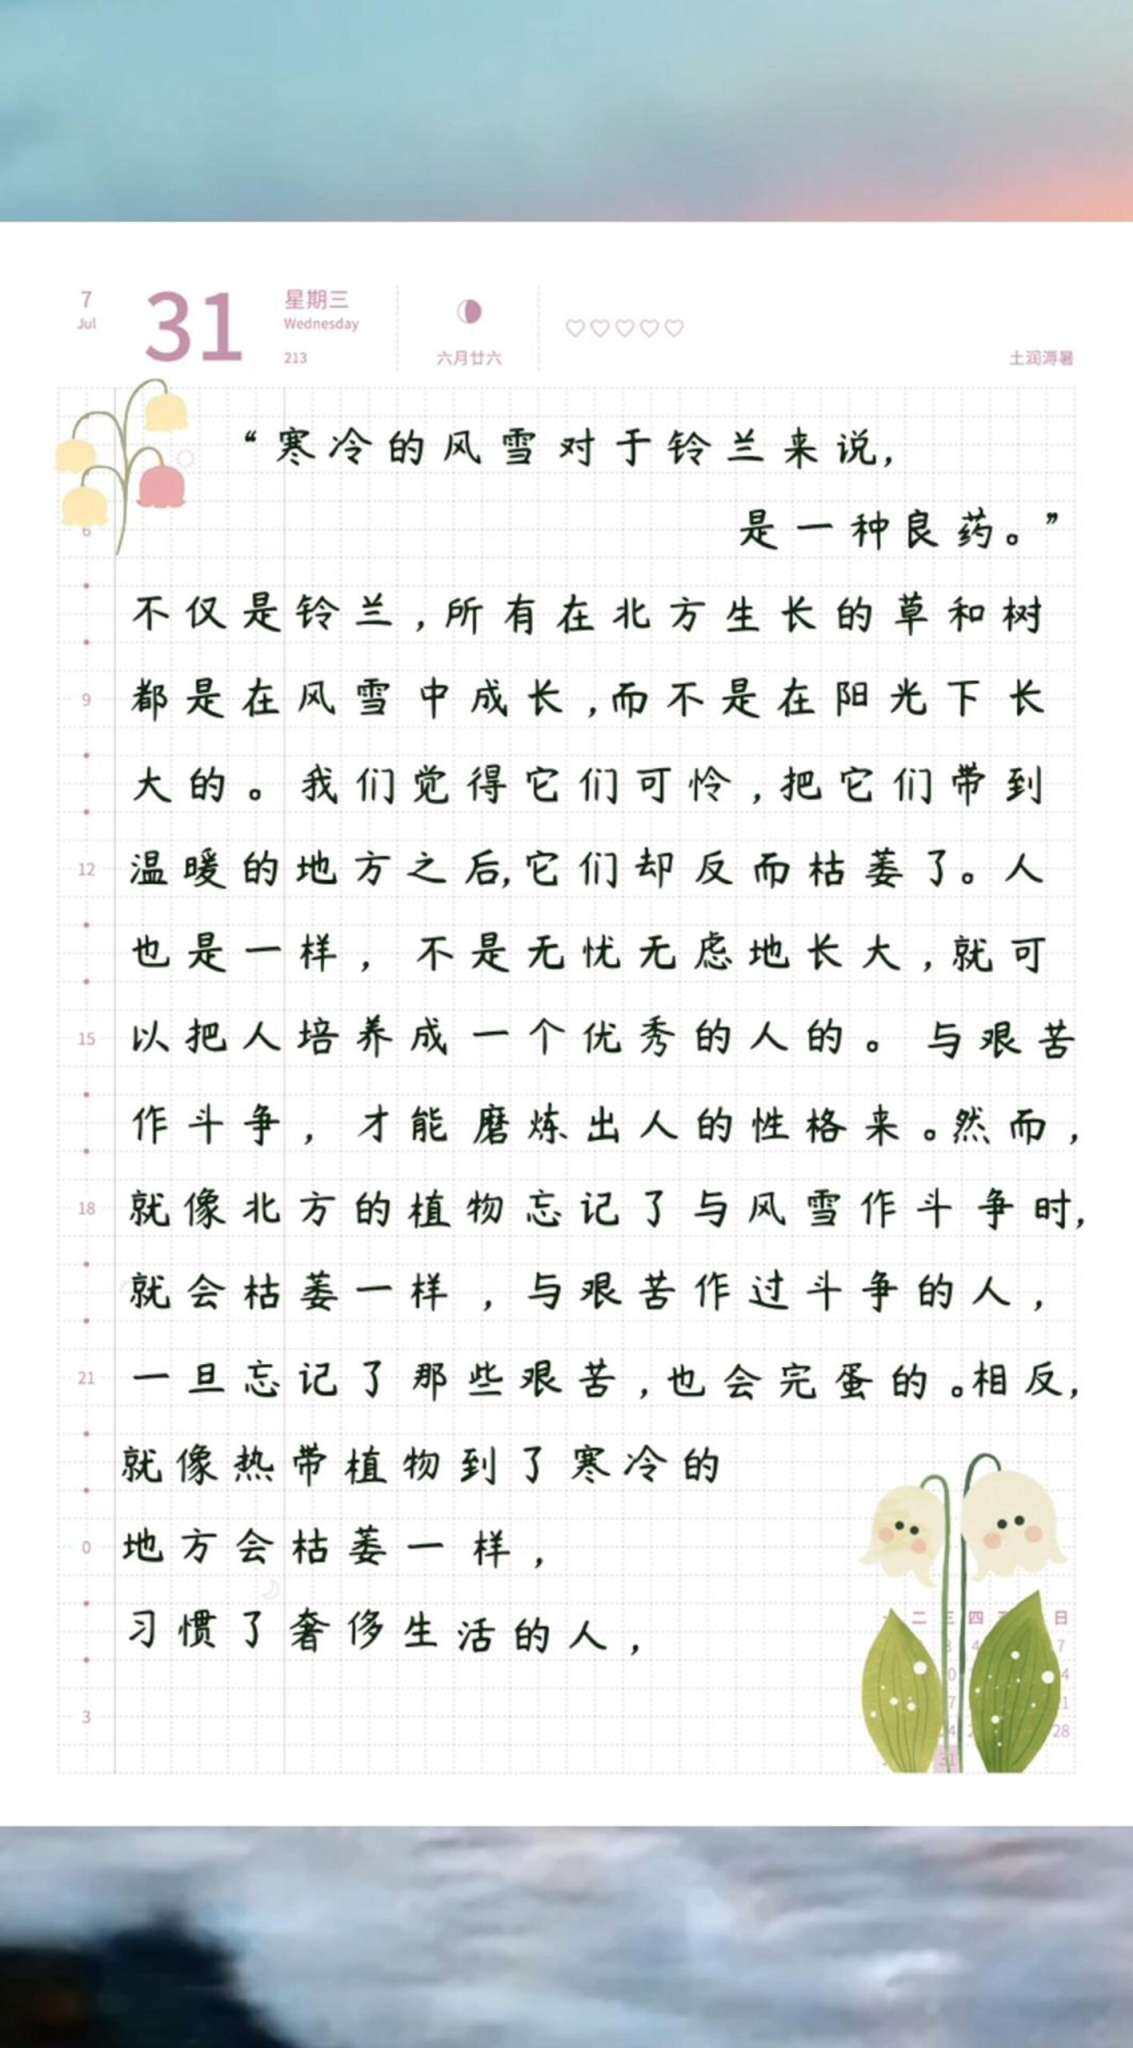 7
Jul
31
星期三
Wednesday
213
六月廿六
土润溽暑
“寒冷的风雪对于铃兰来说,
是一种良药。”
6
不仅是铃兰,所有在北方生长的草和树
9
都是在风雪中成长,而不是在阳光下长
大的。我们觉得它们可怜,把它们带到
12
温暖的地方之后,它们却反而枯萎了。人
也是一样,不是无忧无虑地长大,就可
15
以把人培养成一个优秀的人的。与艰苦
作斗争,才能磨炼出人的性格来。然而,
18
就像北方的植物忘记了与风雪作斗争时,
就会枯萎一样,与艰苦作过斗争的人,
21
一旦忘记了那些艰苦,也会完蛋的。相反,
就像热带植物到了寒冷的
0
地方会枯萎一样,
习惯了奢侈生活的人,
3
二 三 四 日
3 4 7
28
31